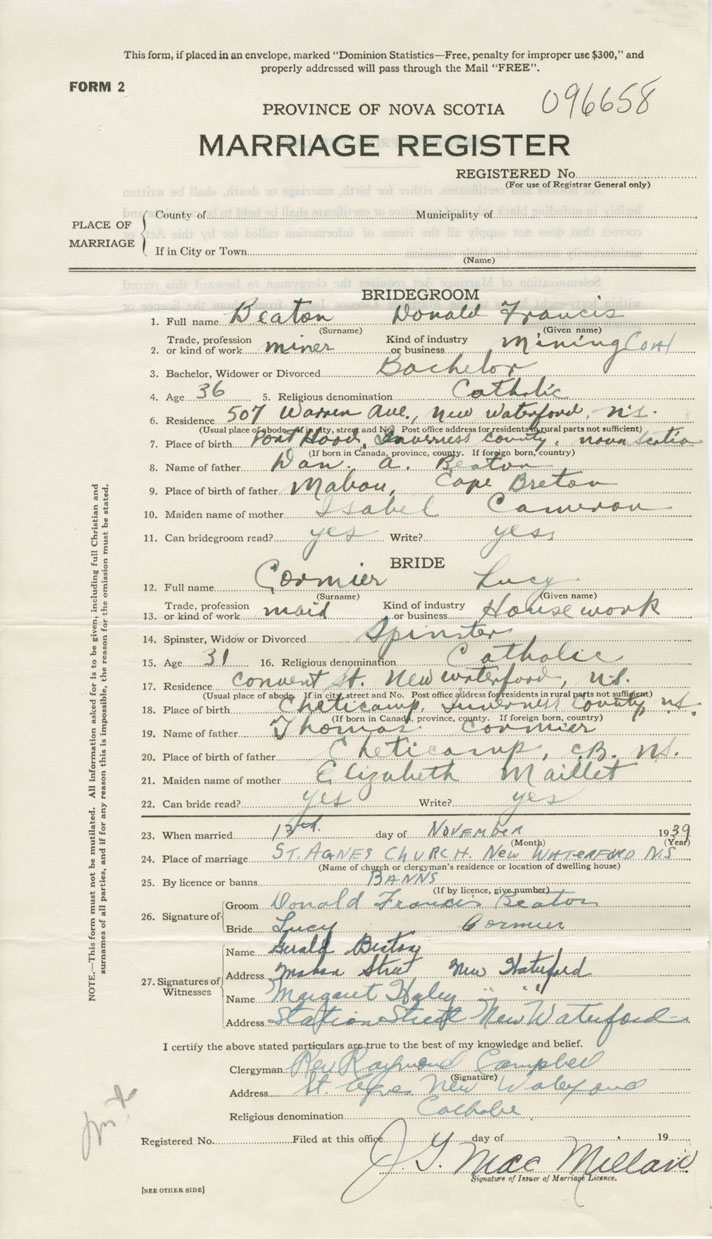 This form, if placed in an envelope, marked "Dominion Statistics—Free, penalty for improper use $300," and
properly addressed will pass through the Mail "FREE".
FORM 2
096658
PROVINCE OF NOVA SCOTIA
MARRIAGE REGISTER
REGISTERED No.
(For use of Registrar General only)
PLACE OF MARRIAGE
County of Municipality of
If in City or Town
(Name)
BRIDEGROOM
1. Full name Beaton Donald Francis
(Surname) (Given name)
2. Trade, profession or kind of work miner Kind of industry or business Mining Coal
3. Bachelor, Widower or Divorced Bachelor
4. Age 36 5. Religious denomination Catholic
6. Residence 507 Warren Ave., New Waterford, N.S.
(Usual place of abode. If in city, street and No. Post office address for residents in rural parts not sufficient)
7. Place of birth Port Hood, Inverness County, Nova Scotia
(If born in Canada, province, county. If foreign born, country)
8. Name of father Dan. A. Beaton
9. Place of birth of father Mabou, Cape Breton
10. Maiden name of mother Isabel Cameron
11. Can bridegroom read? yes Write? yes
BRIDE
12. Full name Cormier Lucy
(Surname) (Given name)
13. Trade, profession or kind of work maid Kind of industry or business Housework
14. Spinster, Widow or Divorced Spinster
15. Age 31 16. Religious denomination Catholic
17. Residence Convent St. New Waterford, N.S.
(Usual place of abode. If in city, street and No. Post office address for residents in rural parts not sufficient)
18. Place of birth Cheticamp, Inverness County N.S.
(If born in Canada, province, county. If foreign born, country)
19. Name of father Thomas Cormier
20. Place of birth of father Cheticamp, C.B. N.S.
21. Maiden name of mother Elizabeth Maillet
22. Can bride read? yes Write? yes
23. When married 13th day of NOVEMBER 1939
(Month) (Year)
24. Place of marriage ST. AGNES CHURCH. NEW WATERFORD N.S
(Name of church or clergyman's residence or location of dwelling house)
25. By licence or banns BANNS
(If by licence, give number)
26. Signature of
Groom Donald Francis Beaton
Bride Lucy Cormier
27. Signatures of Witnesses
Name Gerald Beaton
Address Street New Waterford
Name Margaret Haley " "
Address Station Street New Waterford
I certify the above stated particulars are true to the best of my knowledge and belief.
Clergyman Rev Raymond Campbell
(Signature)
Address St. Agnes New Waterford
Religious denomination Catholic
Registered No. Filed at this office day of 19
J. G. MacMillan
Signature of Issuer of Marriage Licence.
[SEE OTHER SIDE]
NOTE.—This form must not be mutilated. All information asked for is to be given, including full Christian and
surnames of all parties, and if for any reason this is impossible, the reason for the omission must be stated.